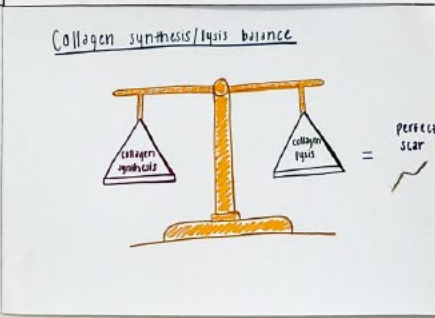 Collagen synthesis/lysis balance
collagen
synthesis
collagen
lysis
=
perfect
scar